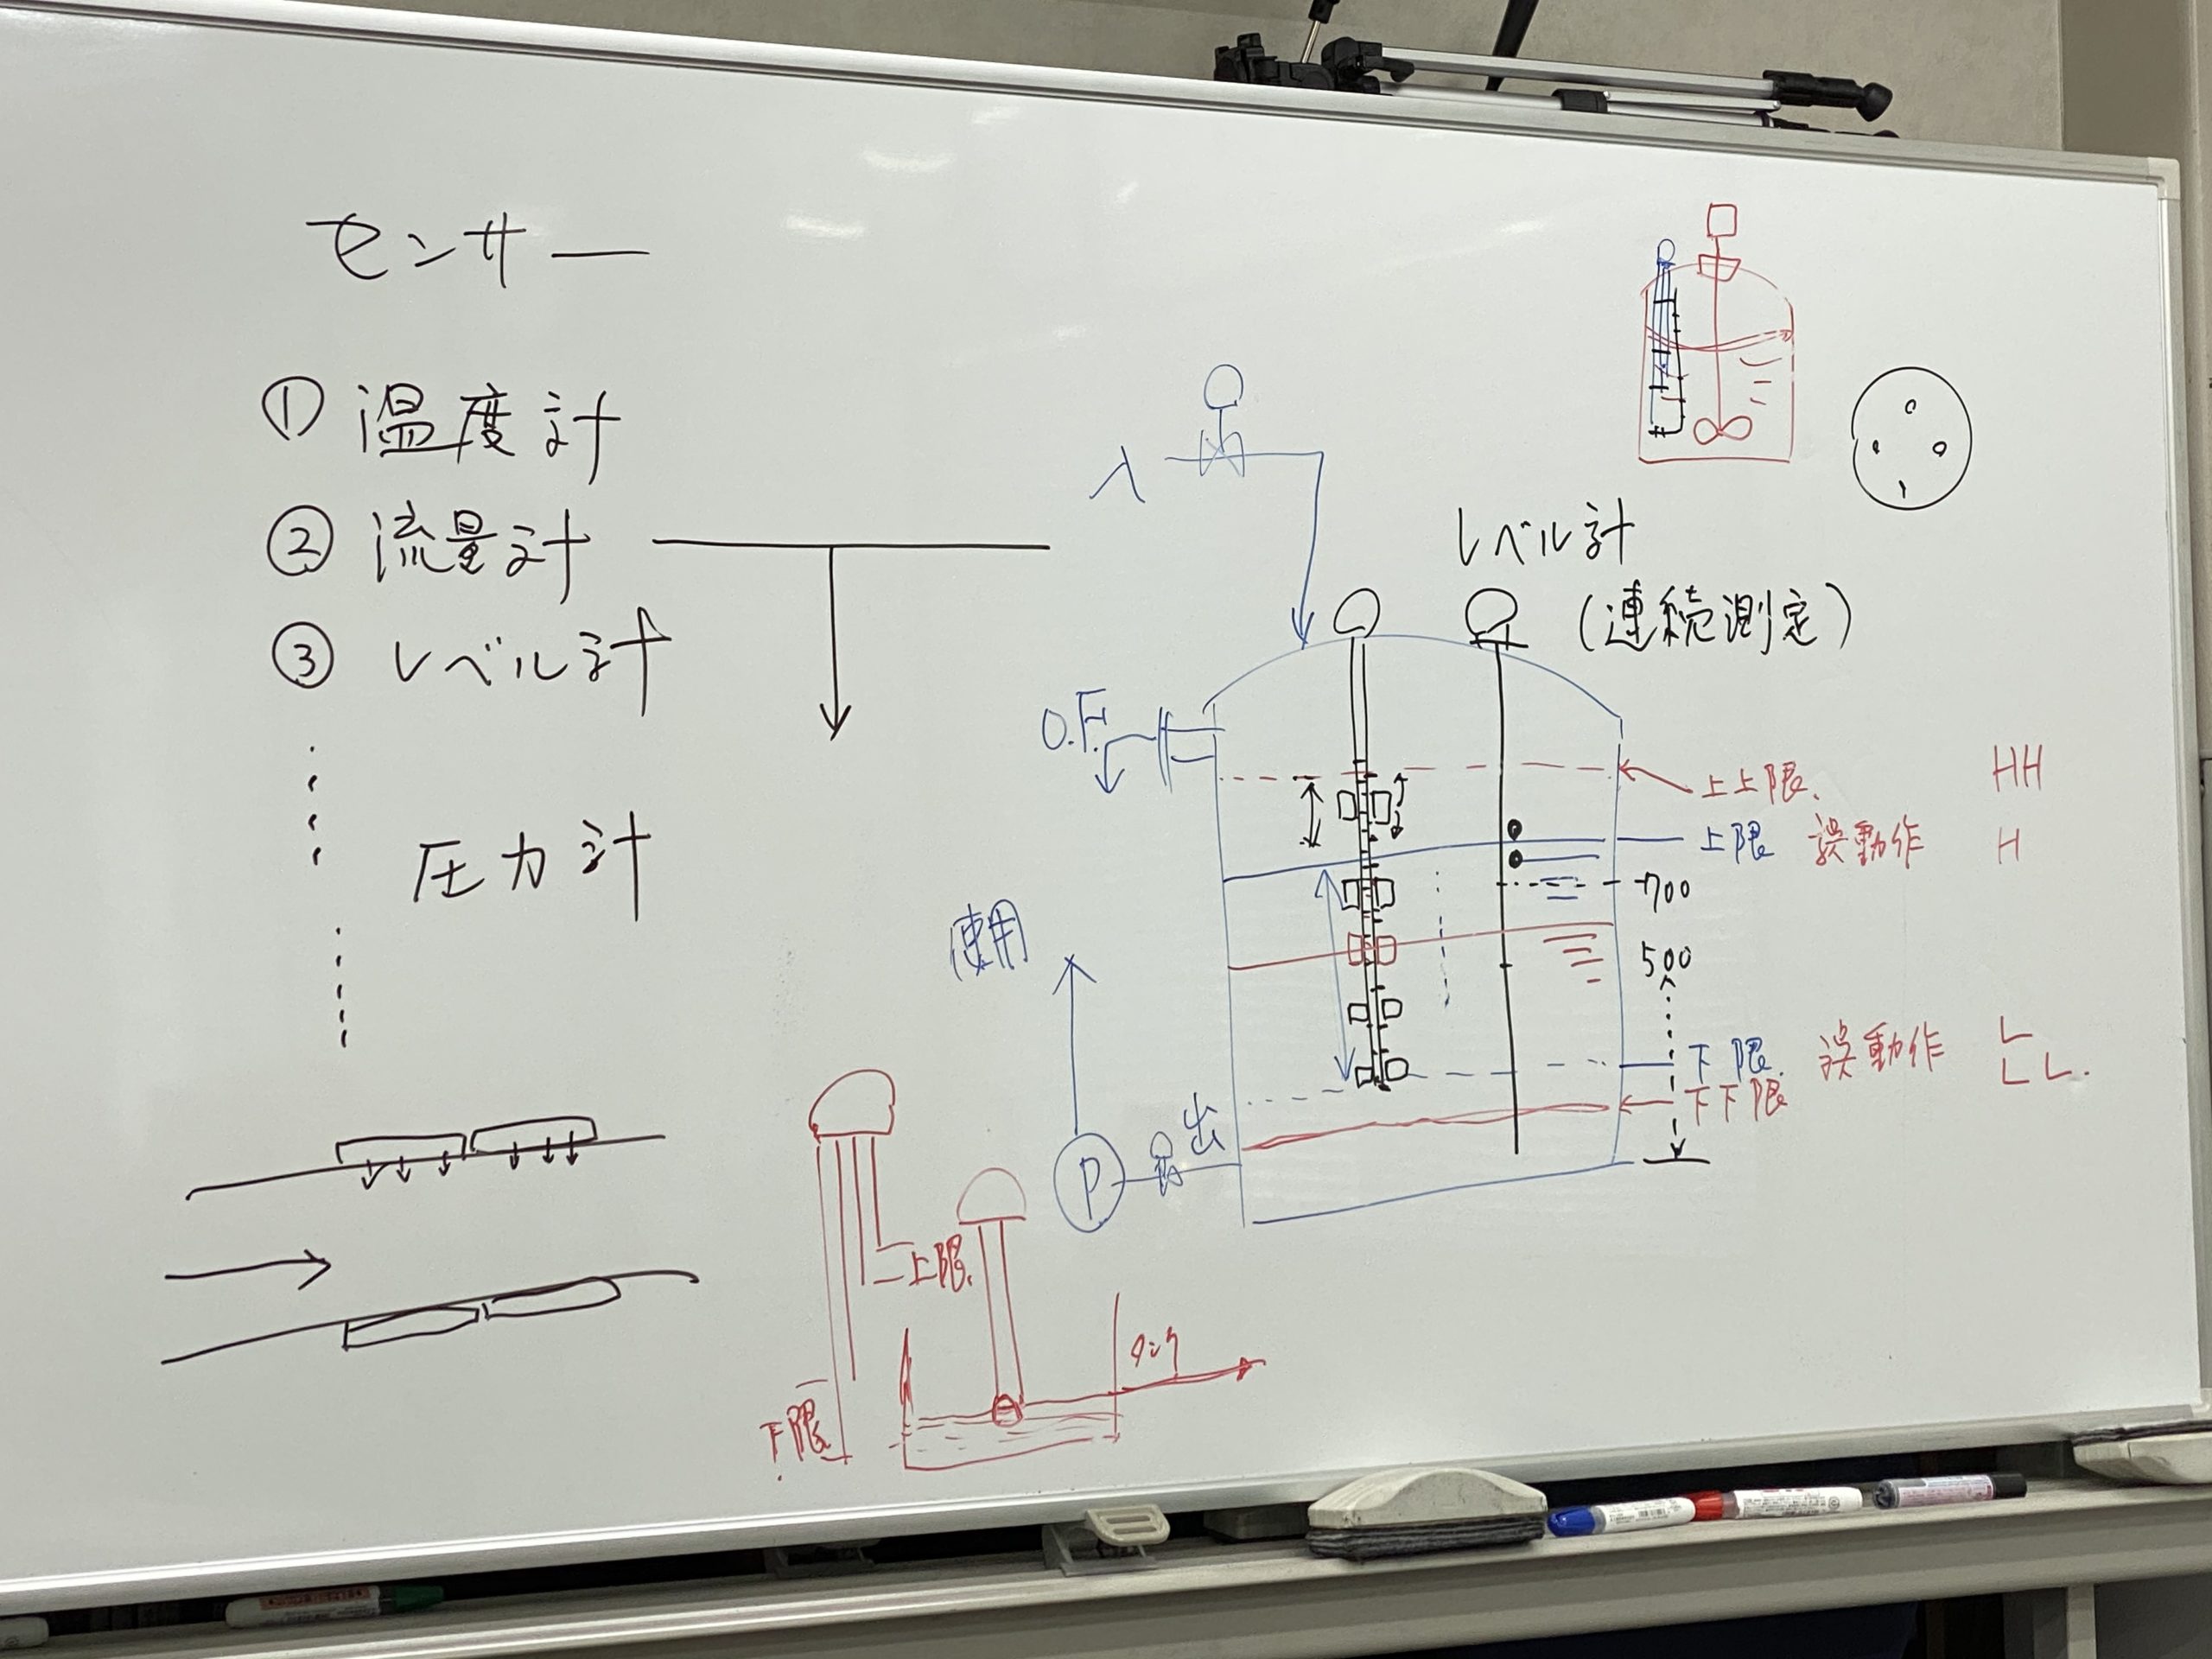 センサー
① 温度計
② 流量計
③ レベル計
圧力計
入
レベル計
(連続測定)
O.F.
上上限. HH
上限 誤動作 H
700
使用
500
下限. 誤動作 L
下下限 LL.
出
P
上限.
タンク
下限